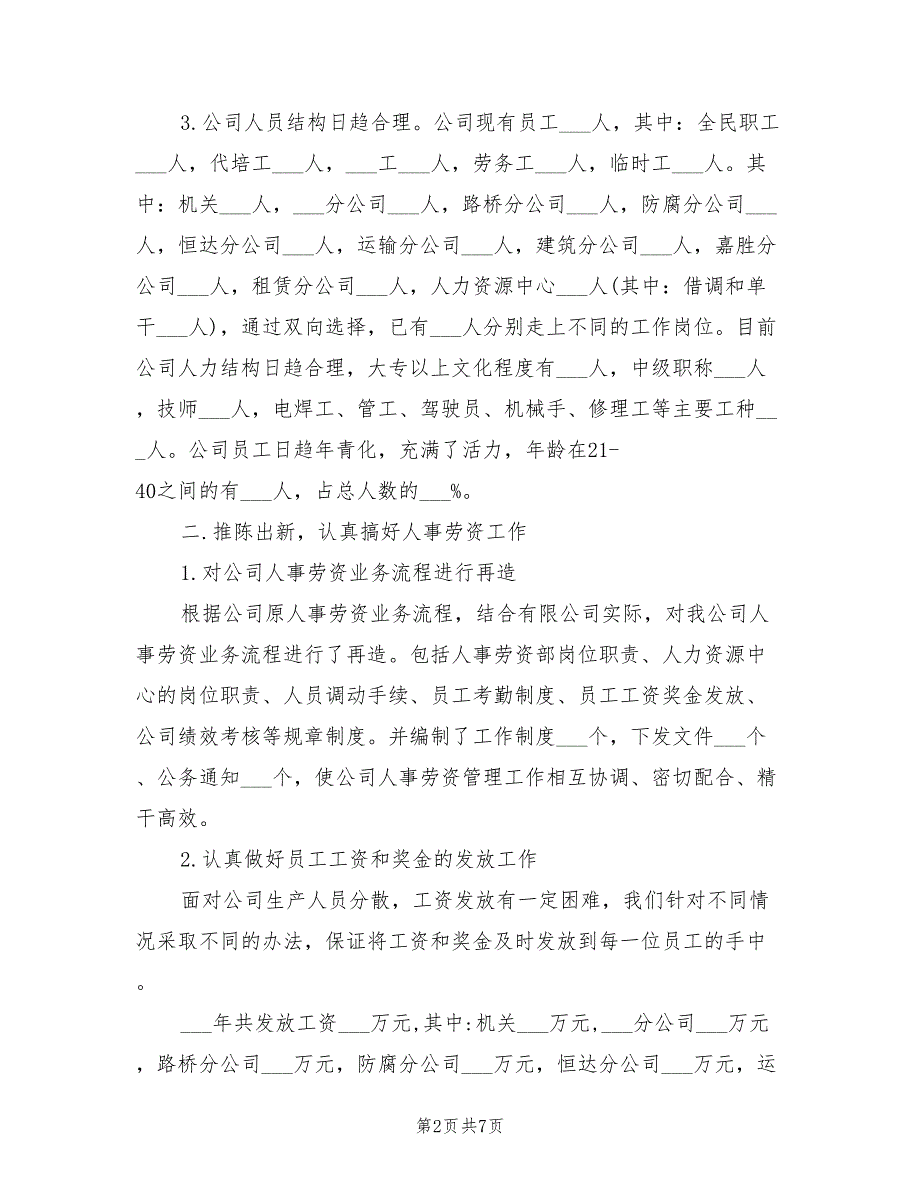 3.公司人员结构日趋合理。公司现有员工___人，其中：全民职工
___人，代培工___人，___工___人，劳务工___人，临时工___人。其
中：机关___人，___分公司___人，路桥分公司___人，防腐分公司___
人，恒达分公司___人，运输分公司___人，建筑分公司___人，嘉胜分
公司___人，租赁分公司___人，人力资源中心___人(其中：借调和单
干___人)，通过双向选择，已有___人分别走上不同的工作岗位。目前
公司人力结构日趋合理，大专以上文化程度有___人，中级职称___人
，技师___人，电焊工、管工、驾驶员、机械手、修理工等主要工种__
_人。公司员工日趋年青化，充满了活力，年龄在21-
40之间的有___人，占总人数的___%。
二.推陈出新，认真搞好人事劳资工作
1.对公司人事劳资业务流程进行再造
根据公司原人事劳资业务流程，结合有限公司实际，对我公司人
事劳资业务流程进行了再造。包括人事劳资部岗位职责、人力资源中
心的岗位职责、人员调动手续、员工考勤制度、员工工资奖金发放、
公司绩效考核等规章制度。并编制了工作制度___个，下发文件___个
、公务通知___个，使公司人事劳资管理工作相互协调、密切配合、精
干高效。
2.认真做好员工工资和奖金的发放工作
面对公司生产人员分散，工资发放有一定困难，我们针对不同情
况采取不同的办法，保证将工资和奖金及时发放到每一位员工的手中
。
___年共发放工资___万元,其中:机关___万元,___分公司___万元
，路桥分公司___万元，防腐分公司___万元，恒达分公司___万元，运
第2页共7页